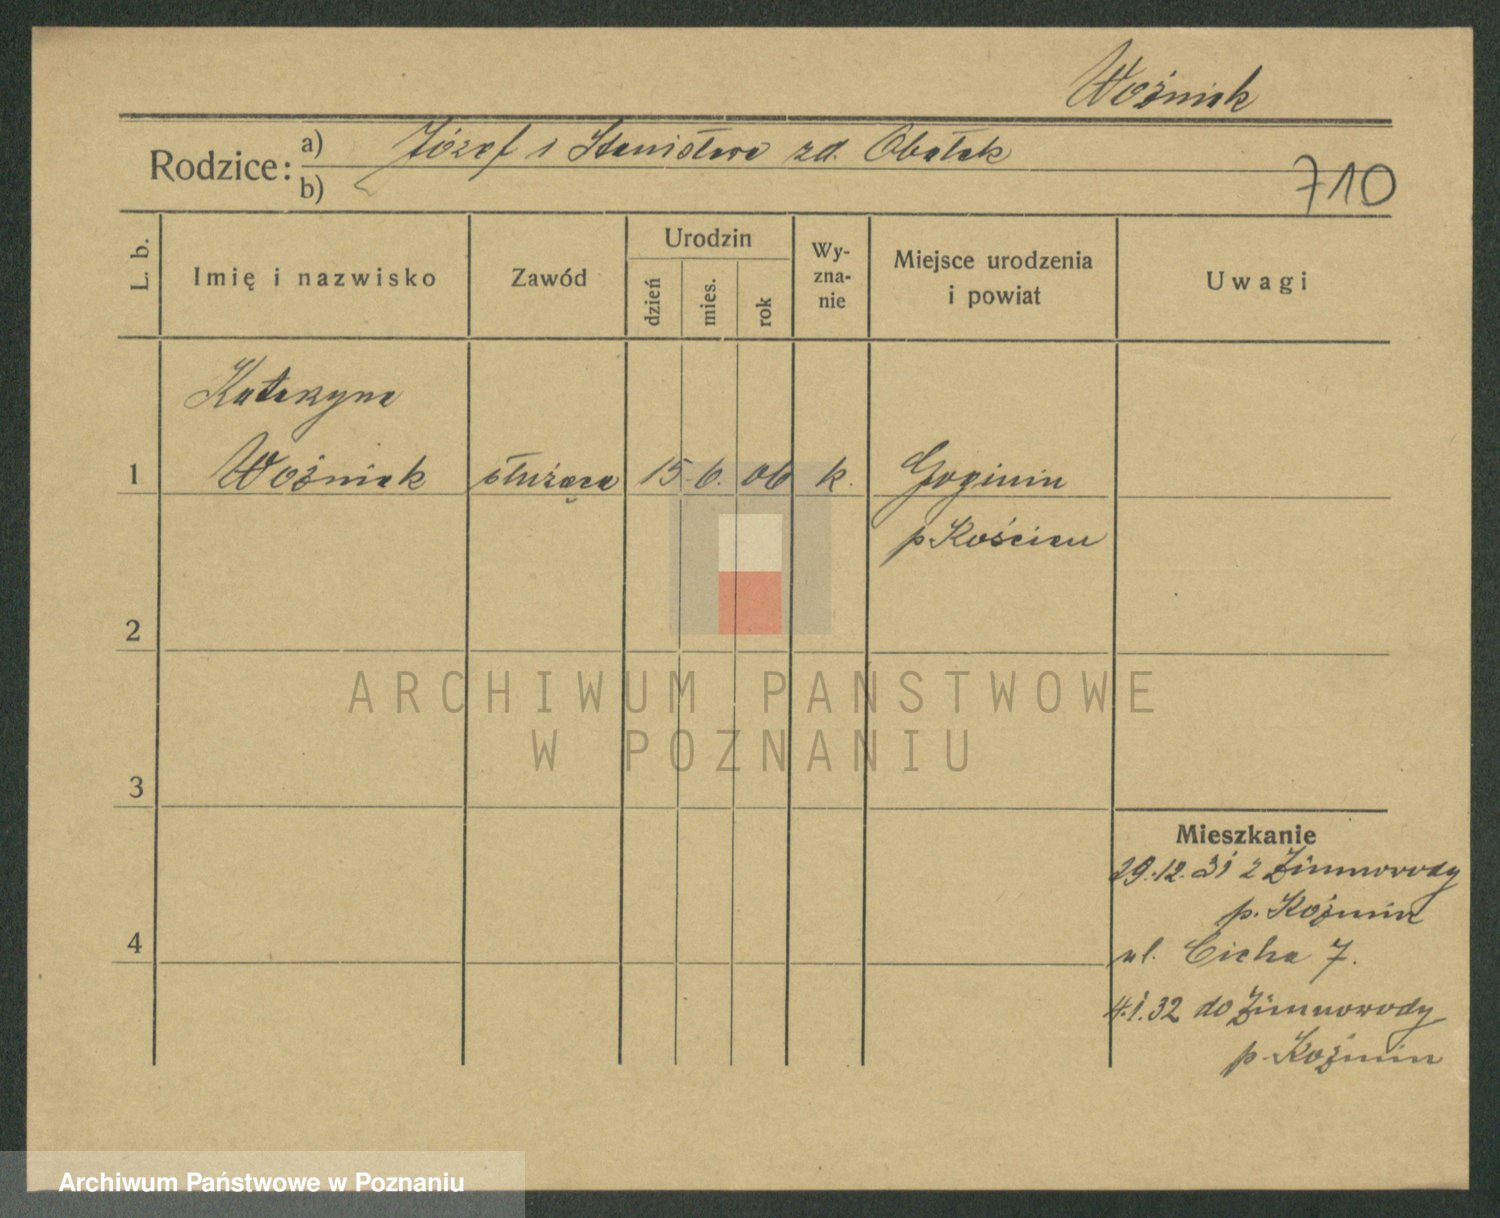 Woźniak
Rodzice: a) Józef i Stanisława zd. Obałek
b)
710
L. b.
Imię i nazwisko
Zawód
Urodzin
dzień
mies.
rok
Wy-
zna-
nie
Miejsce urodzenia
i powiat
Uwagi
Katarzyna
1 Woźniak służąca 15 6. 06 k.
p Kościan
2
3
4
ARCHIWUM PAŃSTWOWE
W POZNANIU
Mieszkanie
29.12.31 z Zimnowody
p. Koźmin
ul. Cicha 7.
4.1.32 do Zimnowody
p. Koźmin
Archiwum Państwowe w Poznaniu